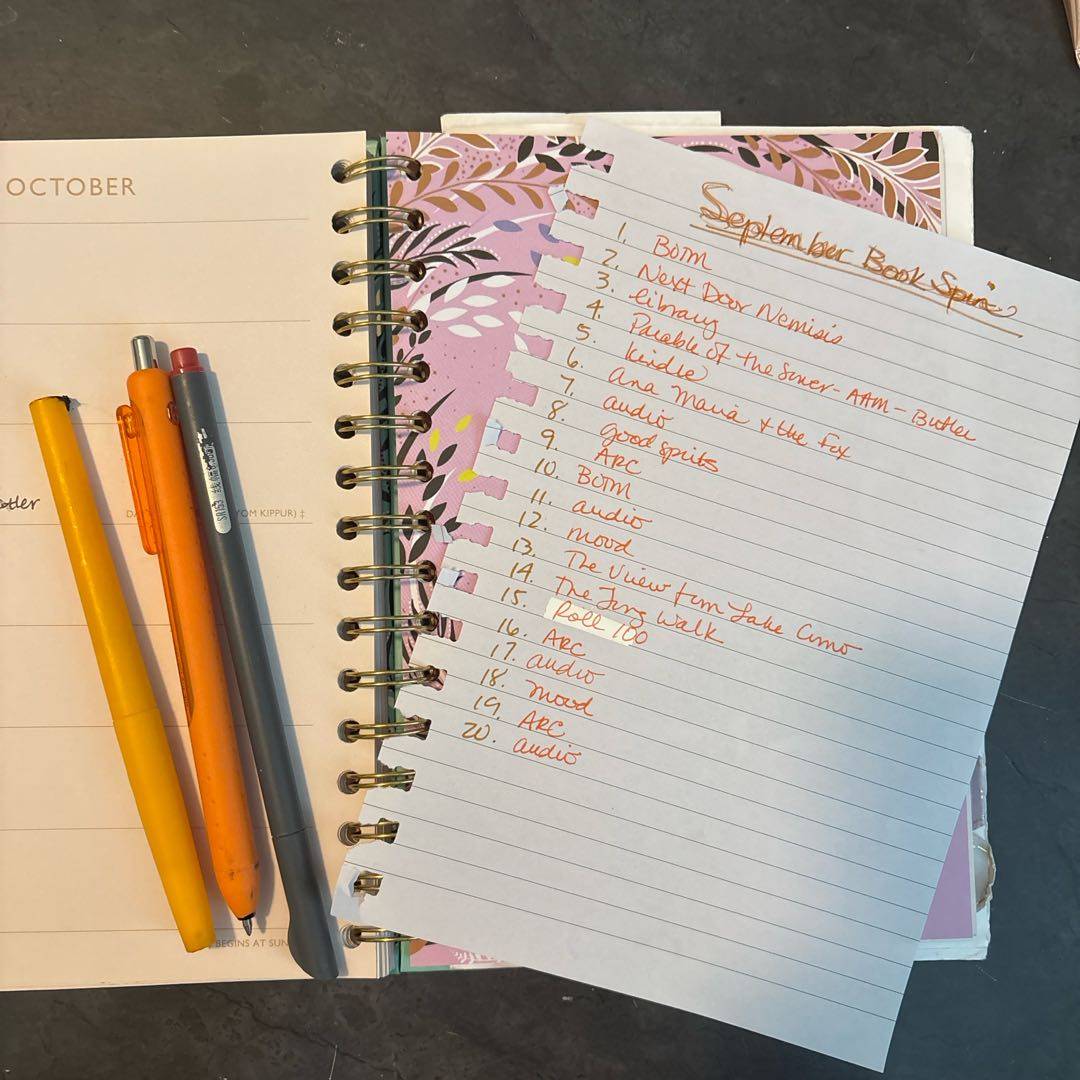 OCTOBER
YOM KIPPUR) ‡
BEGINS AT SUN
September Book Spin
1. BOTM
2. Next Door Nemisis
3. library
4. Parable of the Sower - AAM - Butler
5. Kindle
6. Ana Maria + the Fox
7. audio
8. good spirits
9. ARC
10. BOTM
11. audio
12. mood
13. The View from Lake Como
14. The Long Walk
15. Roll 100
16. ARC
17. audio
18. mood
19. ARC
20. audio